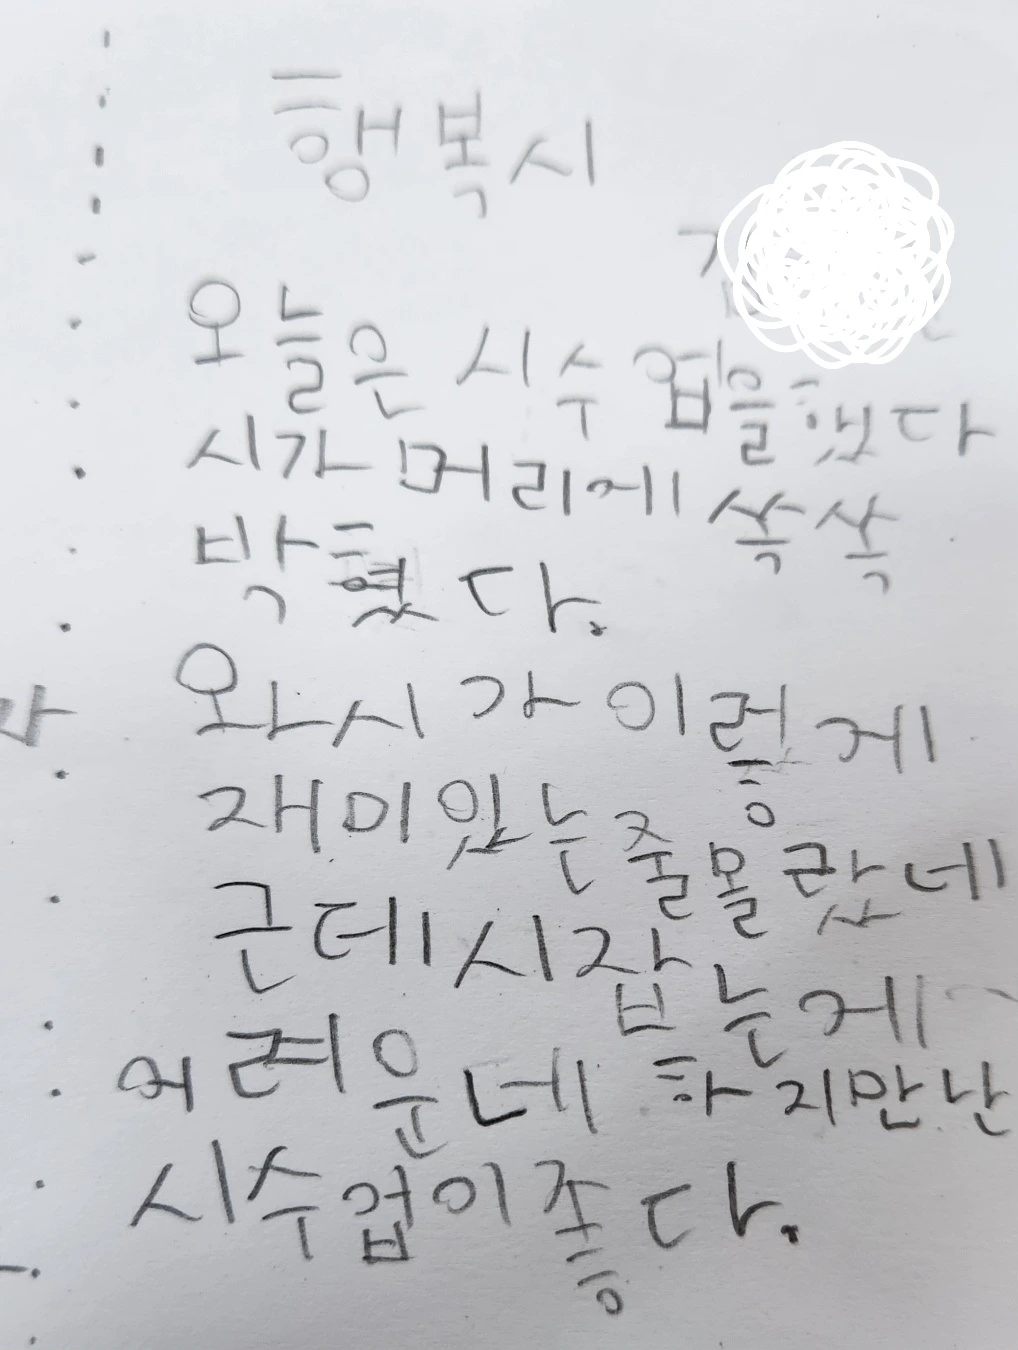 행복시
오늘은 시수업을했다
시가 머리에 쏙쏙
박혔다.
와시가 이렇게
재미있는줄몰랐네
근데시잡는게
어려운데 하지만난
시수업이좋다.